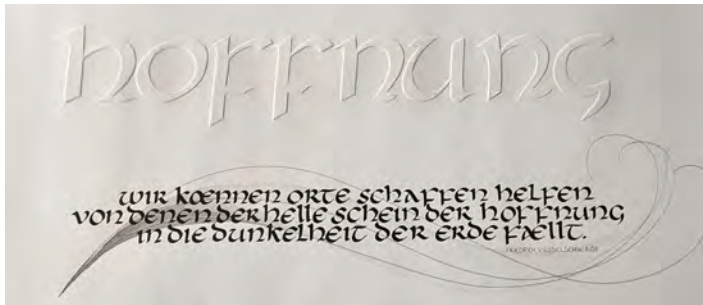 hoffnung
wir kœnnen orte schaffen helfen
von denen der helle schein der hoffnung
in die dunkelheit der erde fællt.